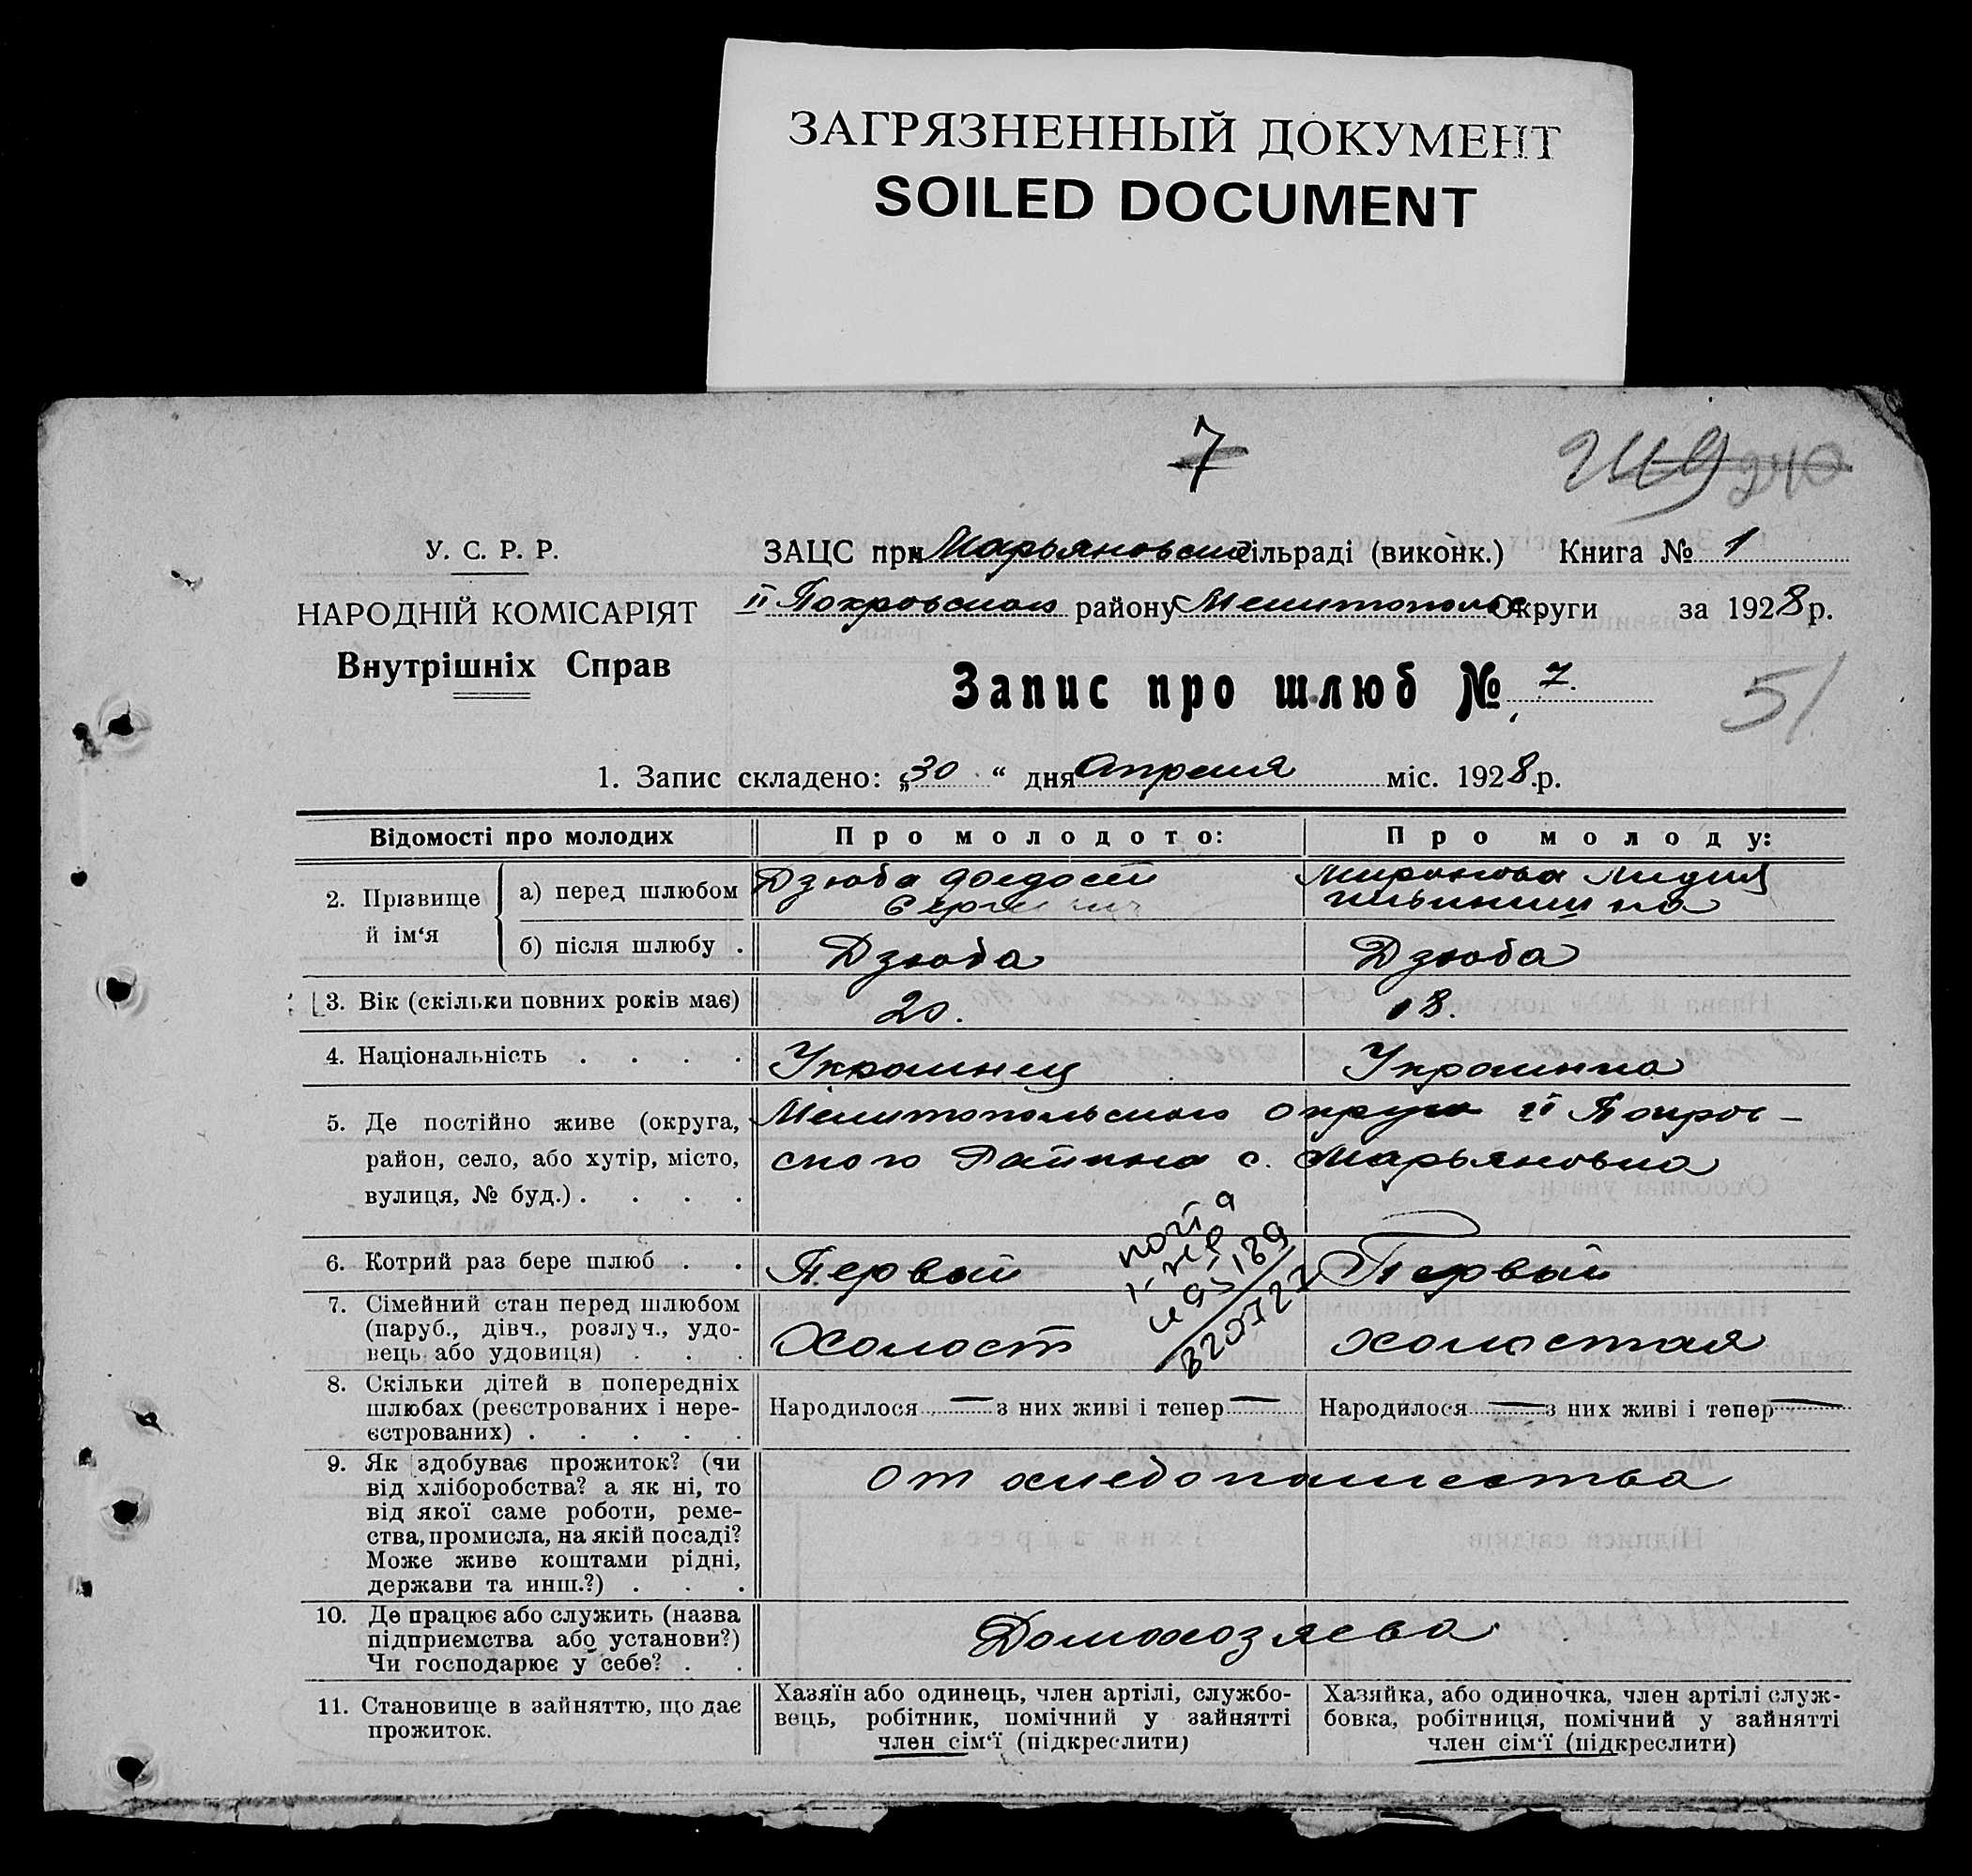 ЗАГРЯЗНЕННЫЙ ДОКУМЕНТ
SOILED DOCUMENT
7
240
У. С. Р. Р.
НАРОДНІЙ КОМІСАРІЯТ
Внутрішніх Справ
ЗАЦС при Марьяновской сільраді (виконк.) Книга № 1
II Покровского району Мелитопольс округи за 1928 р.
Запис про шлюб № 7.
51
1. Запис складено: „30“ дня Апреля міс. 1928 р.
Відомості про молодих
Про молодого:
Про молоду:
2. Прізвище й ім‘я
а) перед шлюбом
Дзюба Федосей
Миронова Лидия
б) після шлюбу .
Дзюба
Дзюба
3. Вік (скільки повних років має)
20.
18.
4. Національність . . . .
Украинец
Украинка
5. Де постійно живе (округа,
район, село, або хутір, місто,
вулиця, № буд.) . . . .
Мелитопольского округа II Покров-
ского Района с. Марьяновка
6. Котрий раз бере шлюб . .
Первый
Первый
7. Сімейний стан перед шлюбом
(паруб., дівч., розлуч., удо-
вець або удовиця) . . .
Холост
холостая
8. Скільки дітей в попередніх
шлюбах (реєстрованих і нере-
єстрованих) . . . . .
Народилося — з них живі і тепер —
Народилося — з них живі і тепер —
9. Як здобуває прожиток? (чи
від хліборобства? а як ні, то
від якої саме роботи, реме-
ства, промисла, на якій посаді?
Може живе коштами рідні,
держави та инш.?) . . .
от хлебопашества
10. Де працює або служить (назва
підприємства або установи?)
Чи господарює у себе? . .
Домохозяева
11. Становище в зайняттю, що дає
прожиток.
Хазяїн або одинець, член артілі, службо-
вець, робітник, помічний у зайнятті
член сім‘ї (підкреслити)
Хазяйка, або одиночка, член артілі служ-
бовка, робітниця, помічний у зайнятті
член сім‘ї (підкреслити)